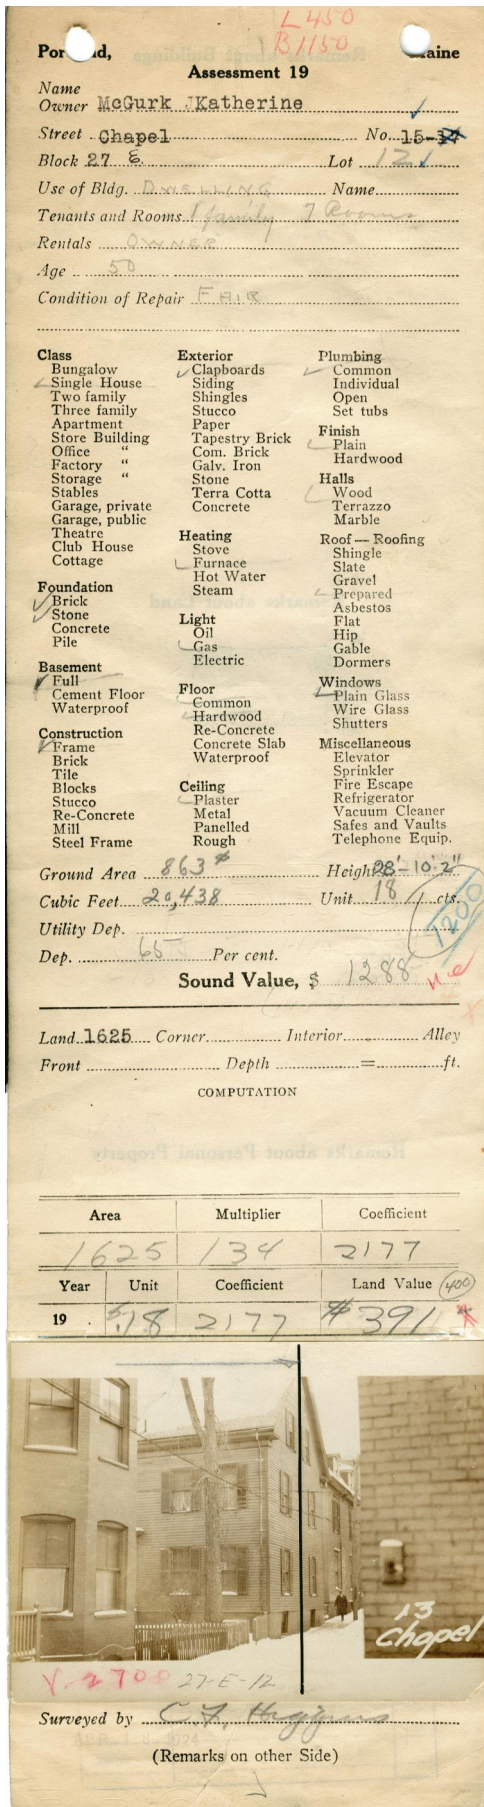 L 450
B 1150
Portland, Maine
Assessment 19
Name
Owner McGurk Katherine
Street Chapel No. 15-
Block 27 E Lot 12
Use of Bldg. DWELLING Name
Tenants and Rooms 1 family 7 Rooms
Rentals OWNER
Age 50
Condition of Repair FAIR
Class
Bungalow
Single House
Two family
Three family
Apartment
Store Building
Office "
Factory "
Storage "
Stables
Garage, private
Garage, public
Theatre
Club House
Cottage
Foundation
Brick
Stone
Concrete
Pile
Basement
Full
Cement Floor
Waterproof
Construction
Frame
Brick
Tile
Blocks
Stucco
Re-Concrete
Mill
Steel Frame
Exterior
Clapboards
Siding
Shingles
Stucco
Paper
Tapestry Brick
Com. Brick
Galv. Iron
Stone
Terra Cotta
Concrete
Heating
Stove
Furnace
Hot Water
Steam
Light
Oil
Gas
Electric
Floor
Common
Hardwood
Re-Concrete
Concrete Slab
Waterproof
Ceiling
Plaster
Metal
Panelled
Rough
Plumbing
Common
Individual
Open
Set tubs
Finish
Plain
Hardwood
Halls
Wood
Terrazzo
Marble
Roof — Roofing
Shingle
Slate
Gravel
Prepared
Asbestos
Flat
Hip
Gable
Dormers
Windows
Plain Glass
Wire Glass
Shutters
Miscellaneous
Elevator
Sprinkler
Fire Escape
Refrigerator
Vacuum Cleaner
Safes and Vaults
Telephone Equip.
Ground Area 863 Height 28'-10'-2"
Cubic Feet 20,438 Unit 18 cts.
1200
Utility Dep.
Dep. 65 Per cent.
Sound Value, $ 1288
Land 1625 Corner Interior Alley
Front Depth = ft.
COMPUTATION
Area Multiplier Coefficient
1625 134 2177
Year Unit Coefficient Land Value 400
19 .18 2177 $391
13
Chapel
V-2700 27-E-12
Surveyed by C. F. Higgins
APR 18 1924
(Remarks on other Side)